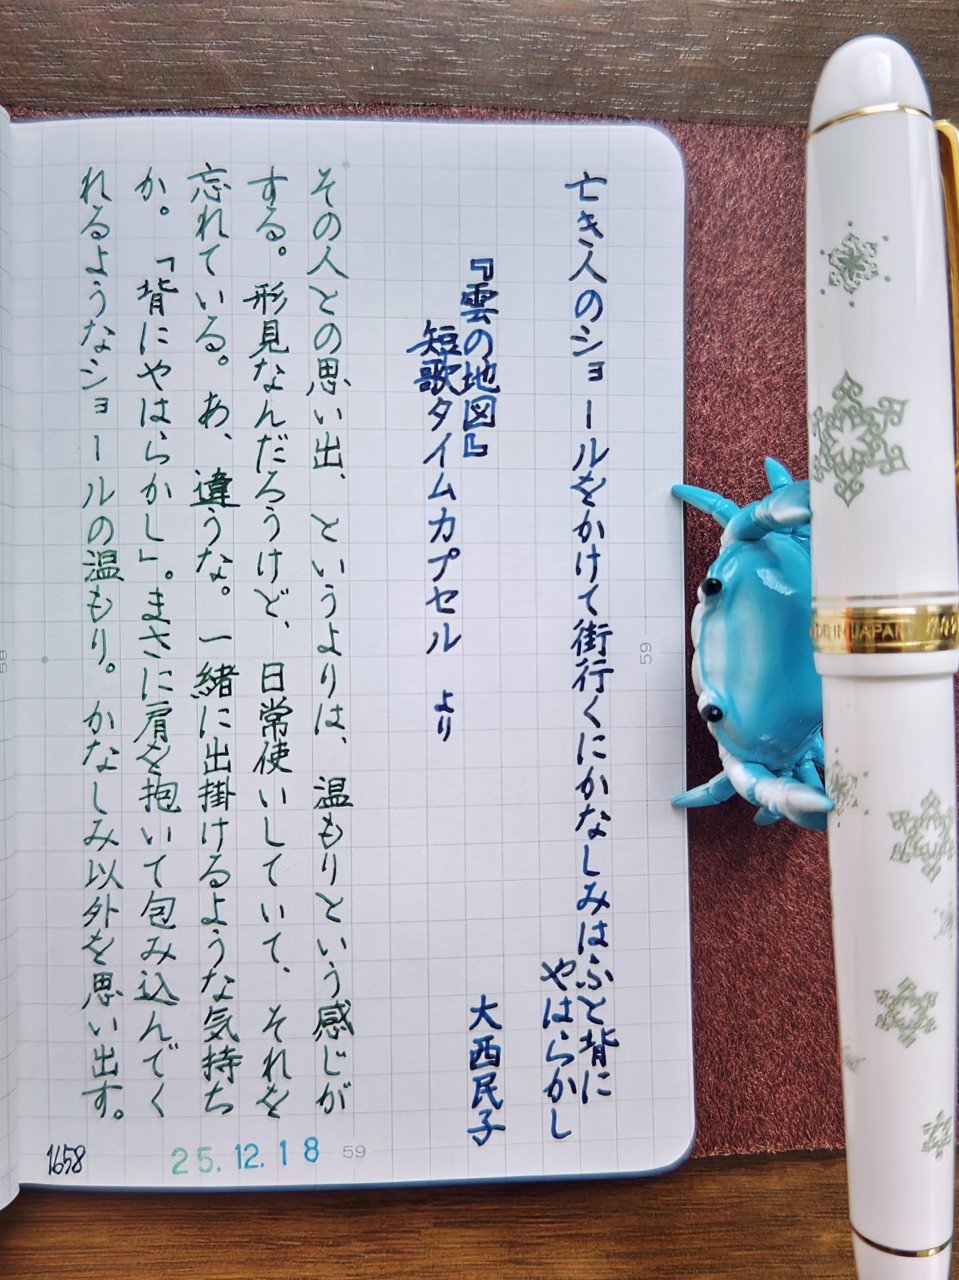 亡き人のショールをかけて街行くにかなしみはふと背に
やはらかし
『雲の地図』
大西民子
短歌タイムカプセル より
その人との思い出、というよりは、温もりという感じが
する。形見なんだろうけど、日常使いしていて、それを
忘れている。あ、違うな。一緒に出掛けるような気持ち
か。「背にやはらかし」。まさに肩を抱いて包み込んでく
れるようなショールの温もり。かなしみ以外を思い出す。
1658
25.12.18
59
59
58
DE IN JAPAN